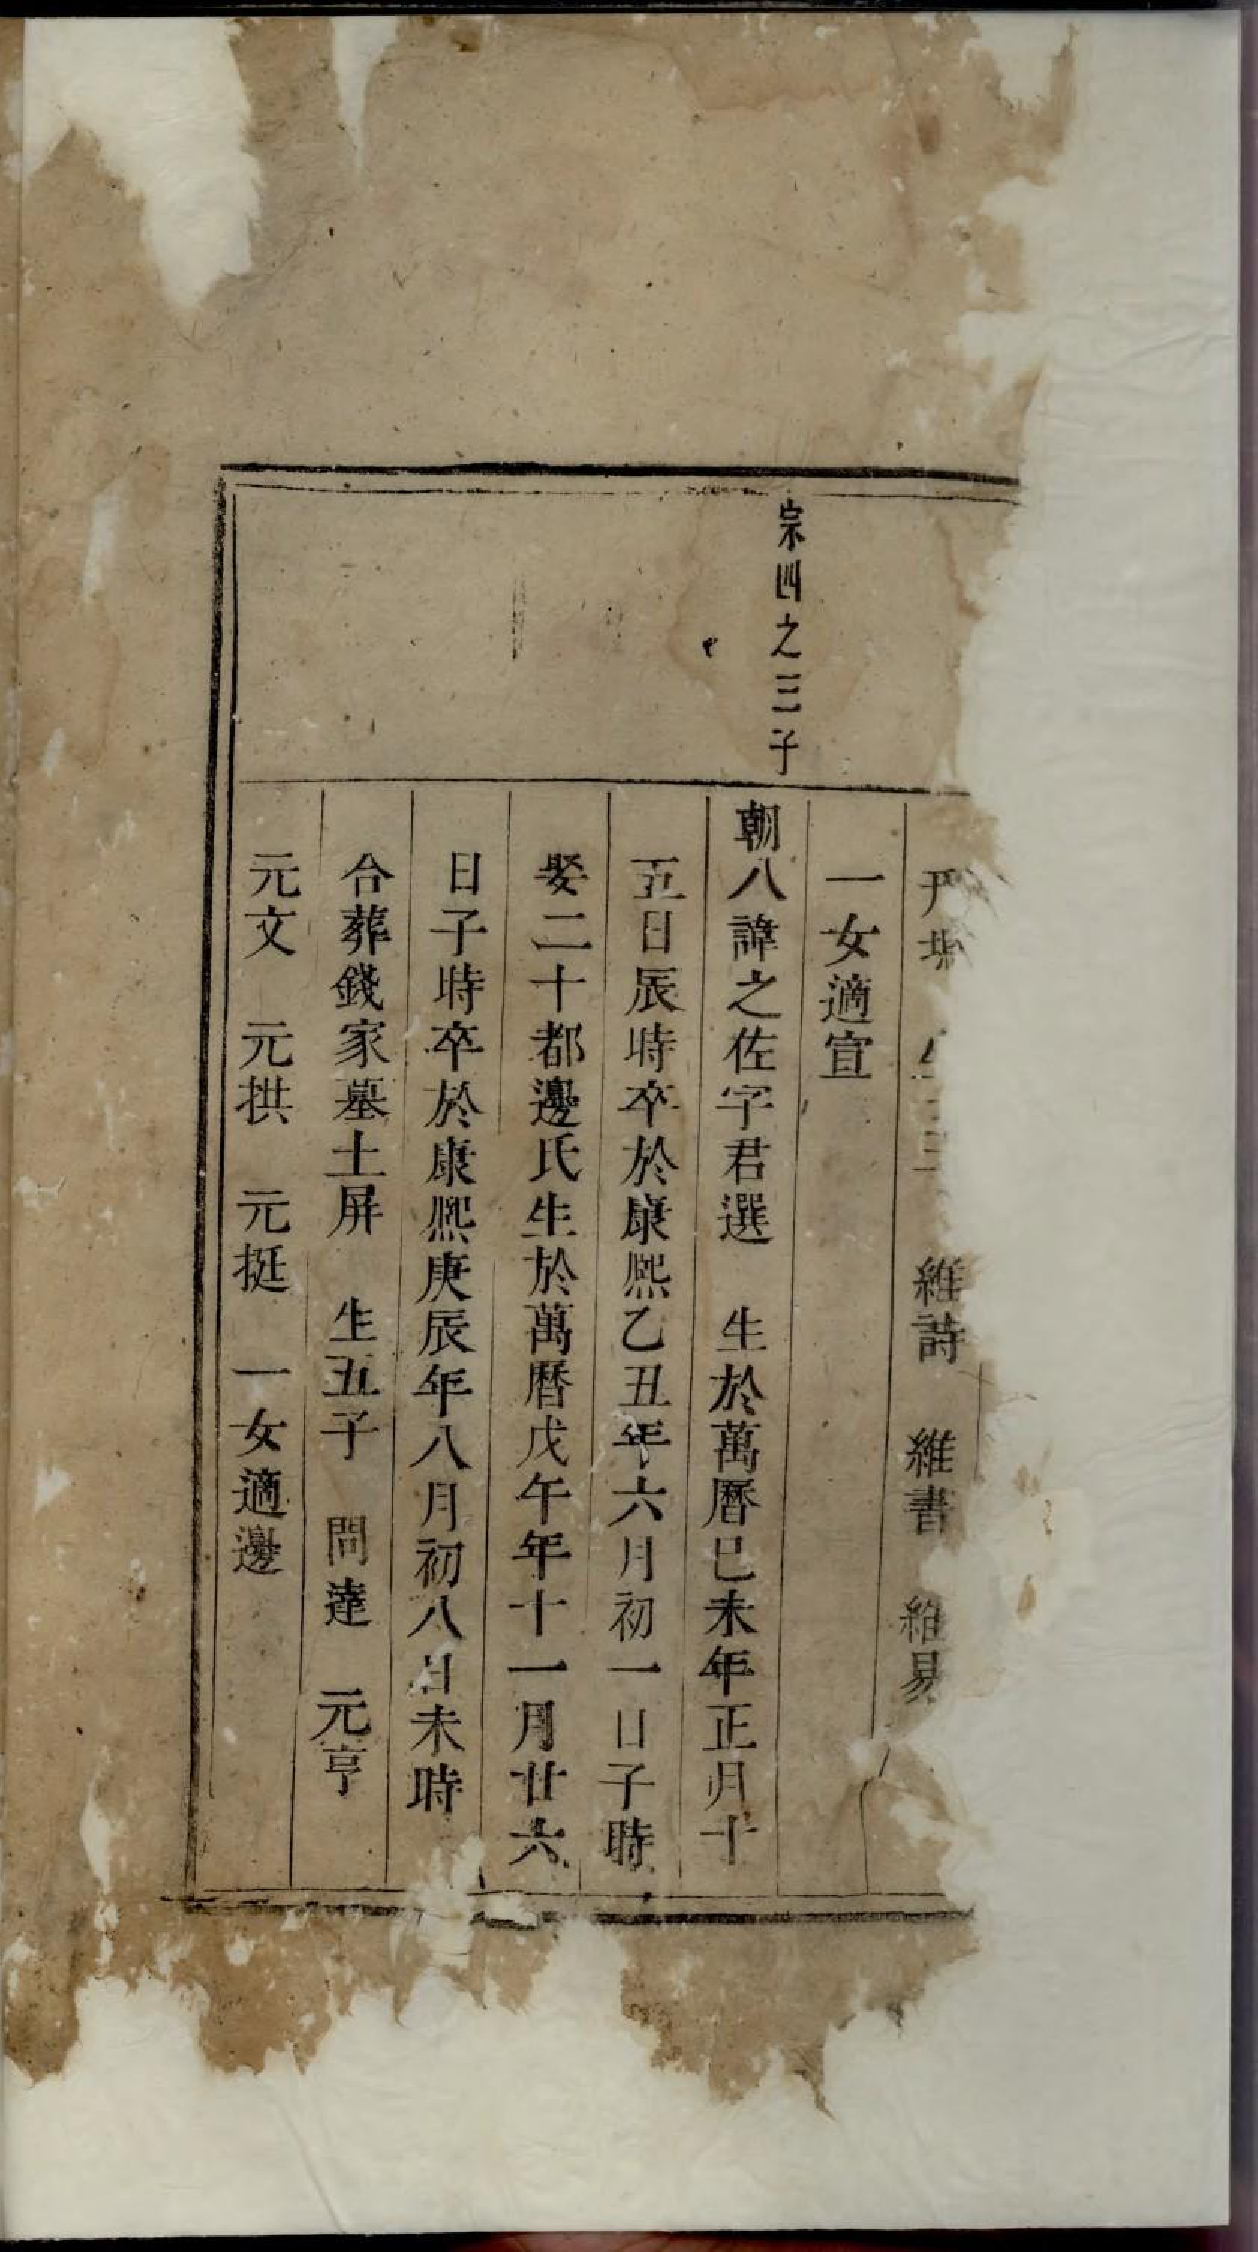 維詩 維書 維易
一女適宣
宗四之三子
朝八諱之佐字君選 生於萬曆己未年正月十
五日辰時卒於康熙乙丑年六月初一日子時
娶二十都邊氏生於萬曆戊午年十一月廿六
日子時卒於康熙庚辰年八月初八日未時
合葬錢家墓土屏 生五子 問達 元亨
元文 元拱 元挺 一女適邊